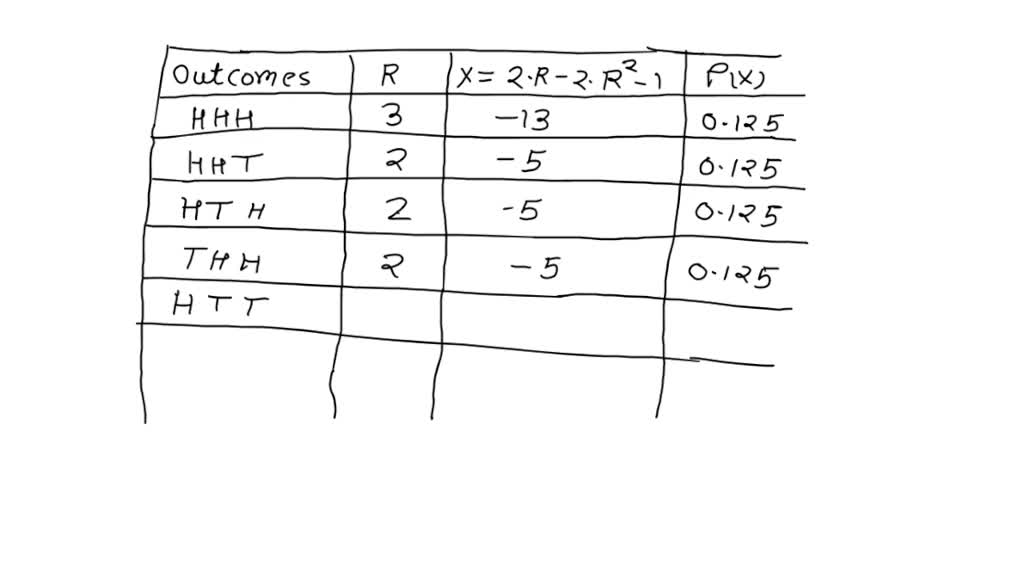 Outcomes R X = 2·R - 2·R² - 1 P(X)
HHH 3 -13 0.125
HHT 2 -5 0.125
HTH 2 -5 0.125
THH 2 -5 0.125
HTT